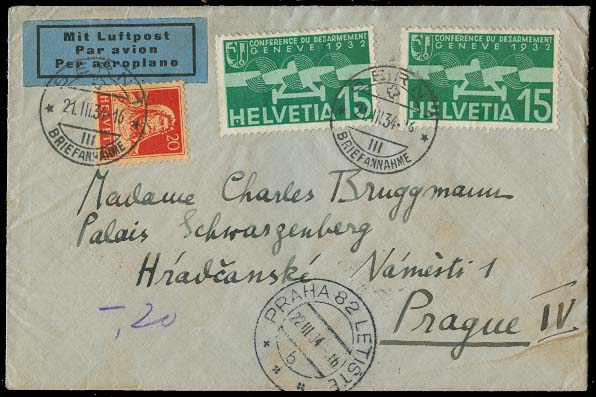 Mit Luftpost
Par avion
Per aeroplano
CONFERENCE DU DESARMEMENT
GENEVE 1932
HELVETIA 15
CONFERENCE DU DESARMEMENT
GENEVE 1932
HELVETIA 15
HELVETIA 20
21.III.34-16
III
BRIEFANNAHME
21.III.34-16
III
BRIEFANNAHME
Madame Charles Bruggmann
Palais Schwarzenberg
Hradčanské Náměsti 1
Prague IV
-,20
PRAHA 82 LETIŠTĚ
22.III.34.-16
6